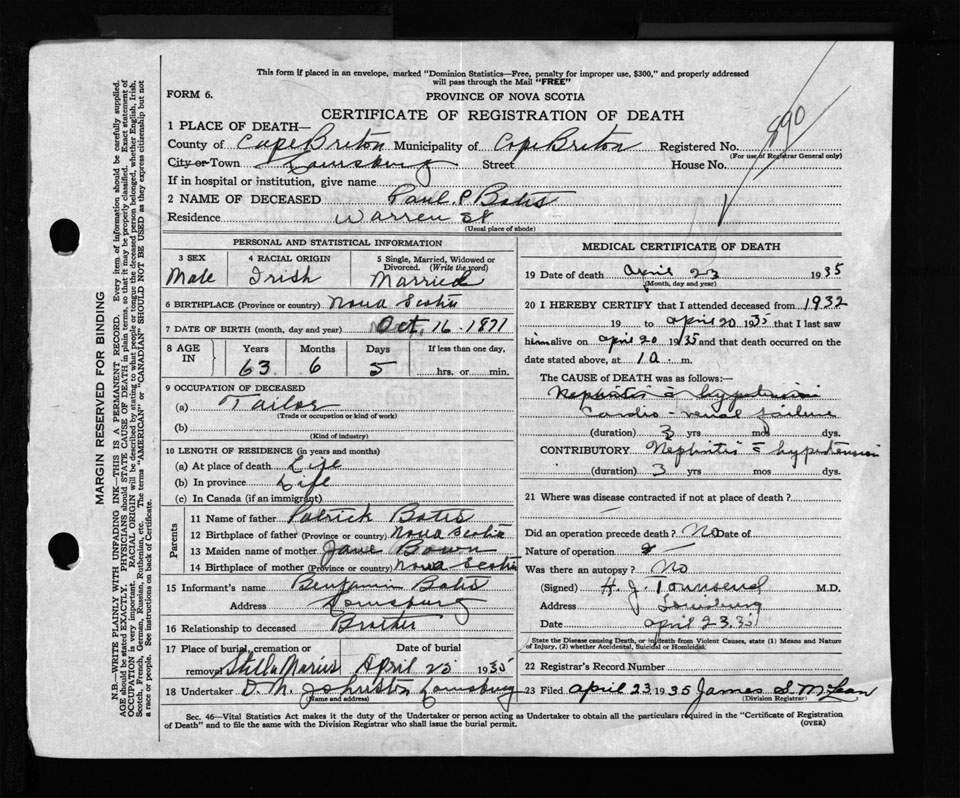 This form if placed in an envelope, marked "Dominion Statistics—Free, penalty for improper use, $300," and properly addressed
will pass through the Mail "FREE"
FORM 6.
PROVINCE OF NOVA SCOTIA
CERTIFICATE OF REGISTRATION OF DEATH
1 PLACE OF DEATH—
County of Cape Breton Municipality of Cape Breton Registered No. 890
(For use of Registrar General only)
City or Town Louisburg Street House No.
If in hospital or institution, give name
2 NAME OF DECEASED Paul P Bates
Residence Warren St
(Usual place of abode)
PERSONAL AND STATISTICAL INFORMATION
3 SEX 4 RACIAL ORIGIN 5 Single, Married, Widowed or
Divorced. (Write the word)
Male Irish Married
6 BIRTHPLACE (Province or country) Nova Scotia
7 DATE OF BIRTH (month, day and year) Oct. 16. 1871
8 AGE IN Years Months Days If less than one day.
63 6 5 hrs. or min.
9 OCCUPATION OF DECEASED
(a) Tailor
(Trade or occupation or kind of work)
(b)
(Kind of industry)
10 LENGTH OF RESIDENCE (in years and months)
(a) At place of death Life
(b) In province Life
(c) In Canada (if an immigrant)
Parents
11 Name of father Patrick Bates
12 Birthplace of father (Province or country) Nova Scotia
13 Maiden name of mother Jane Bown
14 Birthplace of mother (Province or country) Nova Scotia
15 Informant's name Benjamin Bates
Address Louisburg
16 Relationship to deceased Brother
17 Place of burial, cremation or Date of burial
removal Stella Maris April 25 1935
18 Undertaker D. M. Johnston Louisburg
(Name and address)
MEDICAL CERTIFICATE OF DEATH
19 Date of death April 23 1935
(Month, day and year)
20 I HEREBY CERTIFY that I attended deceased from 1932
19 to April 20 1935 that I last saw
him alive on April 20 1935 and that death occurred on the
date stated above, at 1 a. m.
The CAUSE OF DEATH was as follows:
Nephritis c̄ hypertension
Cardio-renal failure
(duration) 3 yrs mos dys.
CONTRIBUTORY Nephritis c̄ hypertension
(duration) 3 yrs mos dys.
21 Where was disease contracted if not at place of death?
—
Did an operation precede death? No Date of
Nature of operation —
Was there an autopsy? No
(Signed) H. J. Townsend M.D.
Address Louisburg
Date April 23.35
State the Disease causing Death, or in death from Violent Causes, state (1) Means and Nature
of Injury, (2) whether Accidental, Suicidal or Homicidal.
22 Registrar's Record Number
23 Filed April 23 1935 James S McLean
(Division Registrar)
Sec. 46—Vital Statistics Act makes it the duty of the Undertaker or person acting as Undertaker to obtain all the particulars required in the "Certificate of Registration
of Death" and to file the same with the Division Registrar who shall issue the burial permit.
(OVER)
MARGIN RESERVED FOR BINDING
N.B.—WRITE PLAINLY WITH UNFADING INK—THIS IS A PERMANENT RECORD. Every item of information should be carefully supplied.
AGE should be stated EXACTLY. PHYSICIANS should STATE CAUSE OF DEATH in plain terms, so that it may be properly classified. Exact statement of
OCCUPATION is very important. RACIAL ORIGIN will be described by stating to what people or tongue the deceased person belonged, whether English, Irish,
Scotch, French, German, Russian, Ruthenian, etc. The terms "AMERICAN" or "CANADIAN" SHOULD NOT BE USED as they express citizenship but not
a race or people. See instructions on back of Certificate.